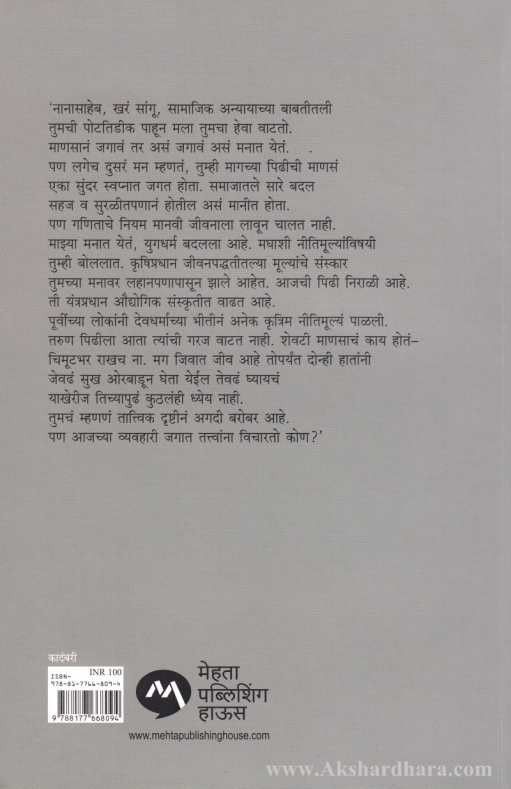 'नानासाहेब, खरं सांगू, सामाजिक अन्यायाच्या बाबतीतली
तुमची पोटतिडीक पाहून मला तुमचा हेवा वाटतो.
माणसानं जगावं तर असं जगावं असं मनात येतं.
पण लगेच दुसरं मन म्हणतं, तुम्ही मागच्या पिढीची माणसं
एका सुंदर स्वप्नात जगत होता. समाजातले सारे बदल
सहज व सुरळीतपणानं होतील असं मानीत होता.
पण गणिताचे नियम मानवी जीवनाला लावून चालत नाही.
माझ्या मनात येतं, युगधर्म बदलला आहे. मघाशी नीतिमूल्यांविषयी
तुम्ही बोललात. कृषिप्रधान जीवनपद्धतीतल्या मूल्यांचे संस्कार
तुमच्या मनावर लहानपणापासून झाले आहेत. आजची पिढी निराळी आहे.
ती यंत्रप्रधान औद्योगिक संस्कृतीत वाढत आहे.
पूर्वीच्या लोकांनी देवधर्माच्या भीतीनं अनेक कृत्रिम नीतिमूल्यं पाळली.
तरुण पिढीला आता त्यांची गरज वाटत नाही. शेवटी माणसाचं काय होतं–
चिमूटभर राखच ना. मग जिवात जीव आहे तोपर्यंत दोन्ही हातांनी
जेवढं सुख ओरबाडून घेता येईल तेवढं घ्यायचं
याखेरीज तिच्यापुढं कुठलंही ध्येय नाही.
तुमचं म्हणणं तात्त्विक दृष्टीनं अगदी बरोबर आहे.
पण आजच्या व्यवहारी जगात तत्त्वांना विचारतो कोण?'
कादंबरी
INR 100
ISBN-
978-81-7766-809-4
9 788177 668094
मेहता
पब्लिशिंग
हाऊस
www.mehtapublishinghouse.com
www.Akshardhara.com